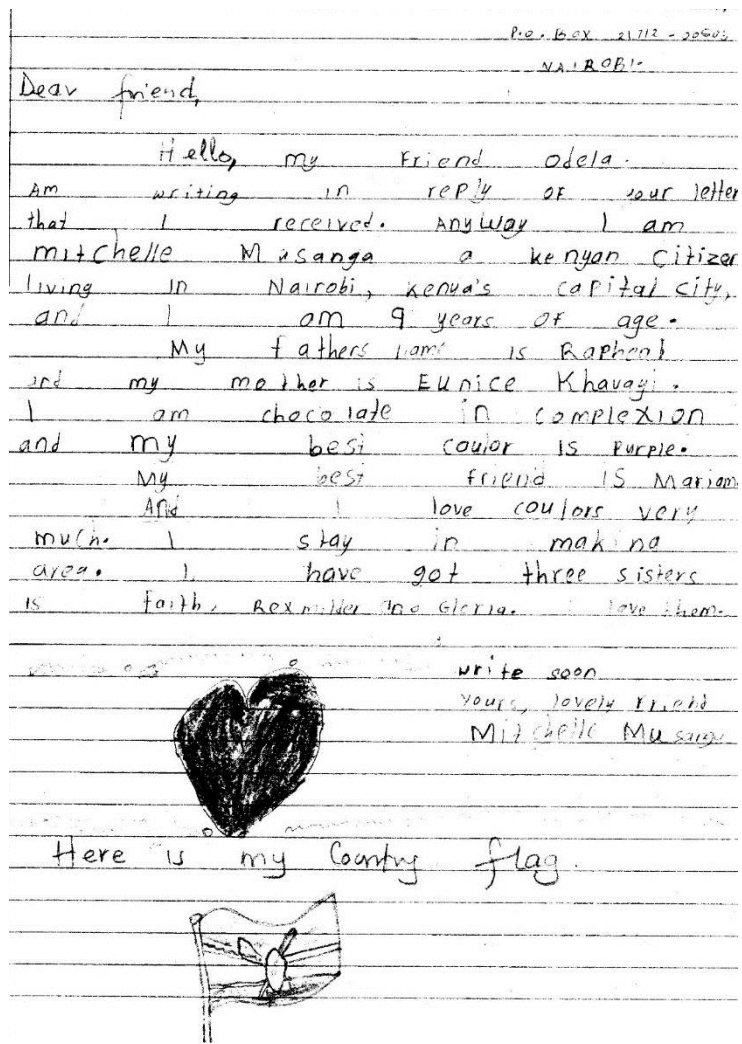 P.O. BOX 21712 -
NAIROBI.
Dear friend,
Hello, my Friend Odela.
Am writing in reply OF your letter
that I received. AnyWay I am
mitchelle Musanga a kenyan Citizen
living in Nairobi, Kenya's capital city,
and I am 9 years OF age.
My fathers name is Rapheal
and my mother is Eunice Khavagi.
I am chocolate in complexion
and my best coulor is Purple.
My best friend is Mariam
And I love coulors very
much. I stay in
area. I have got three sisters
is faith, and Gloria. I love them.
write soon
Yours, lovely Friend
Mitchelle Musanga
Here is my Country flag.